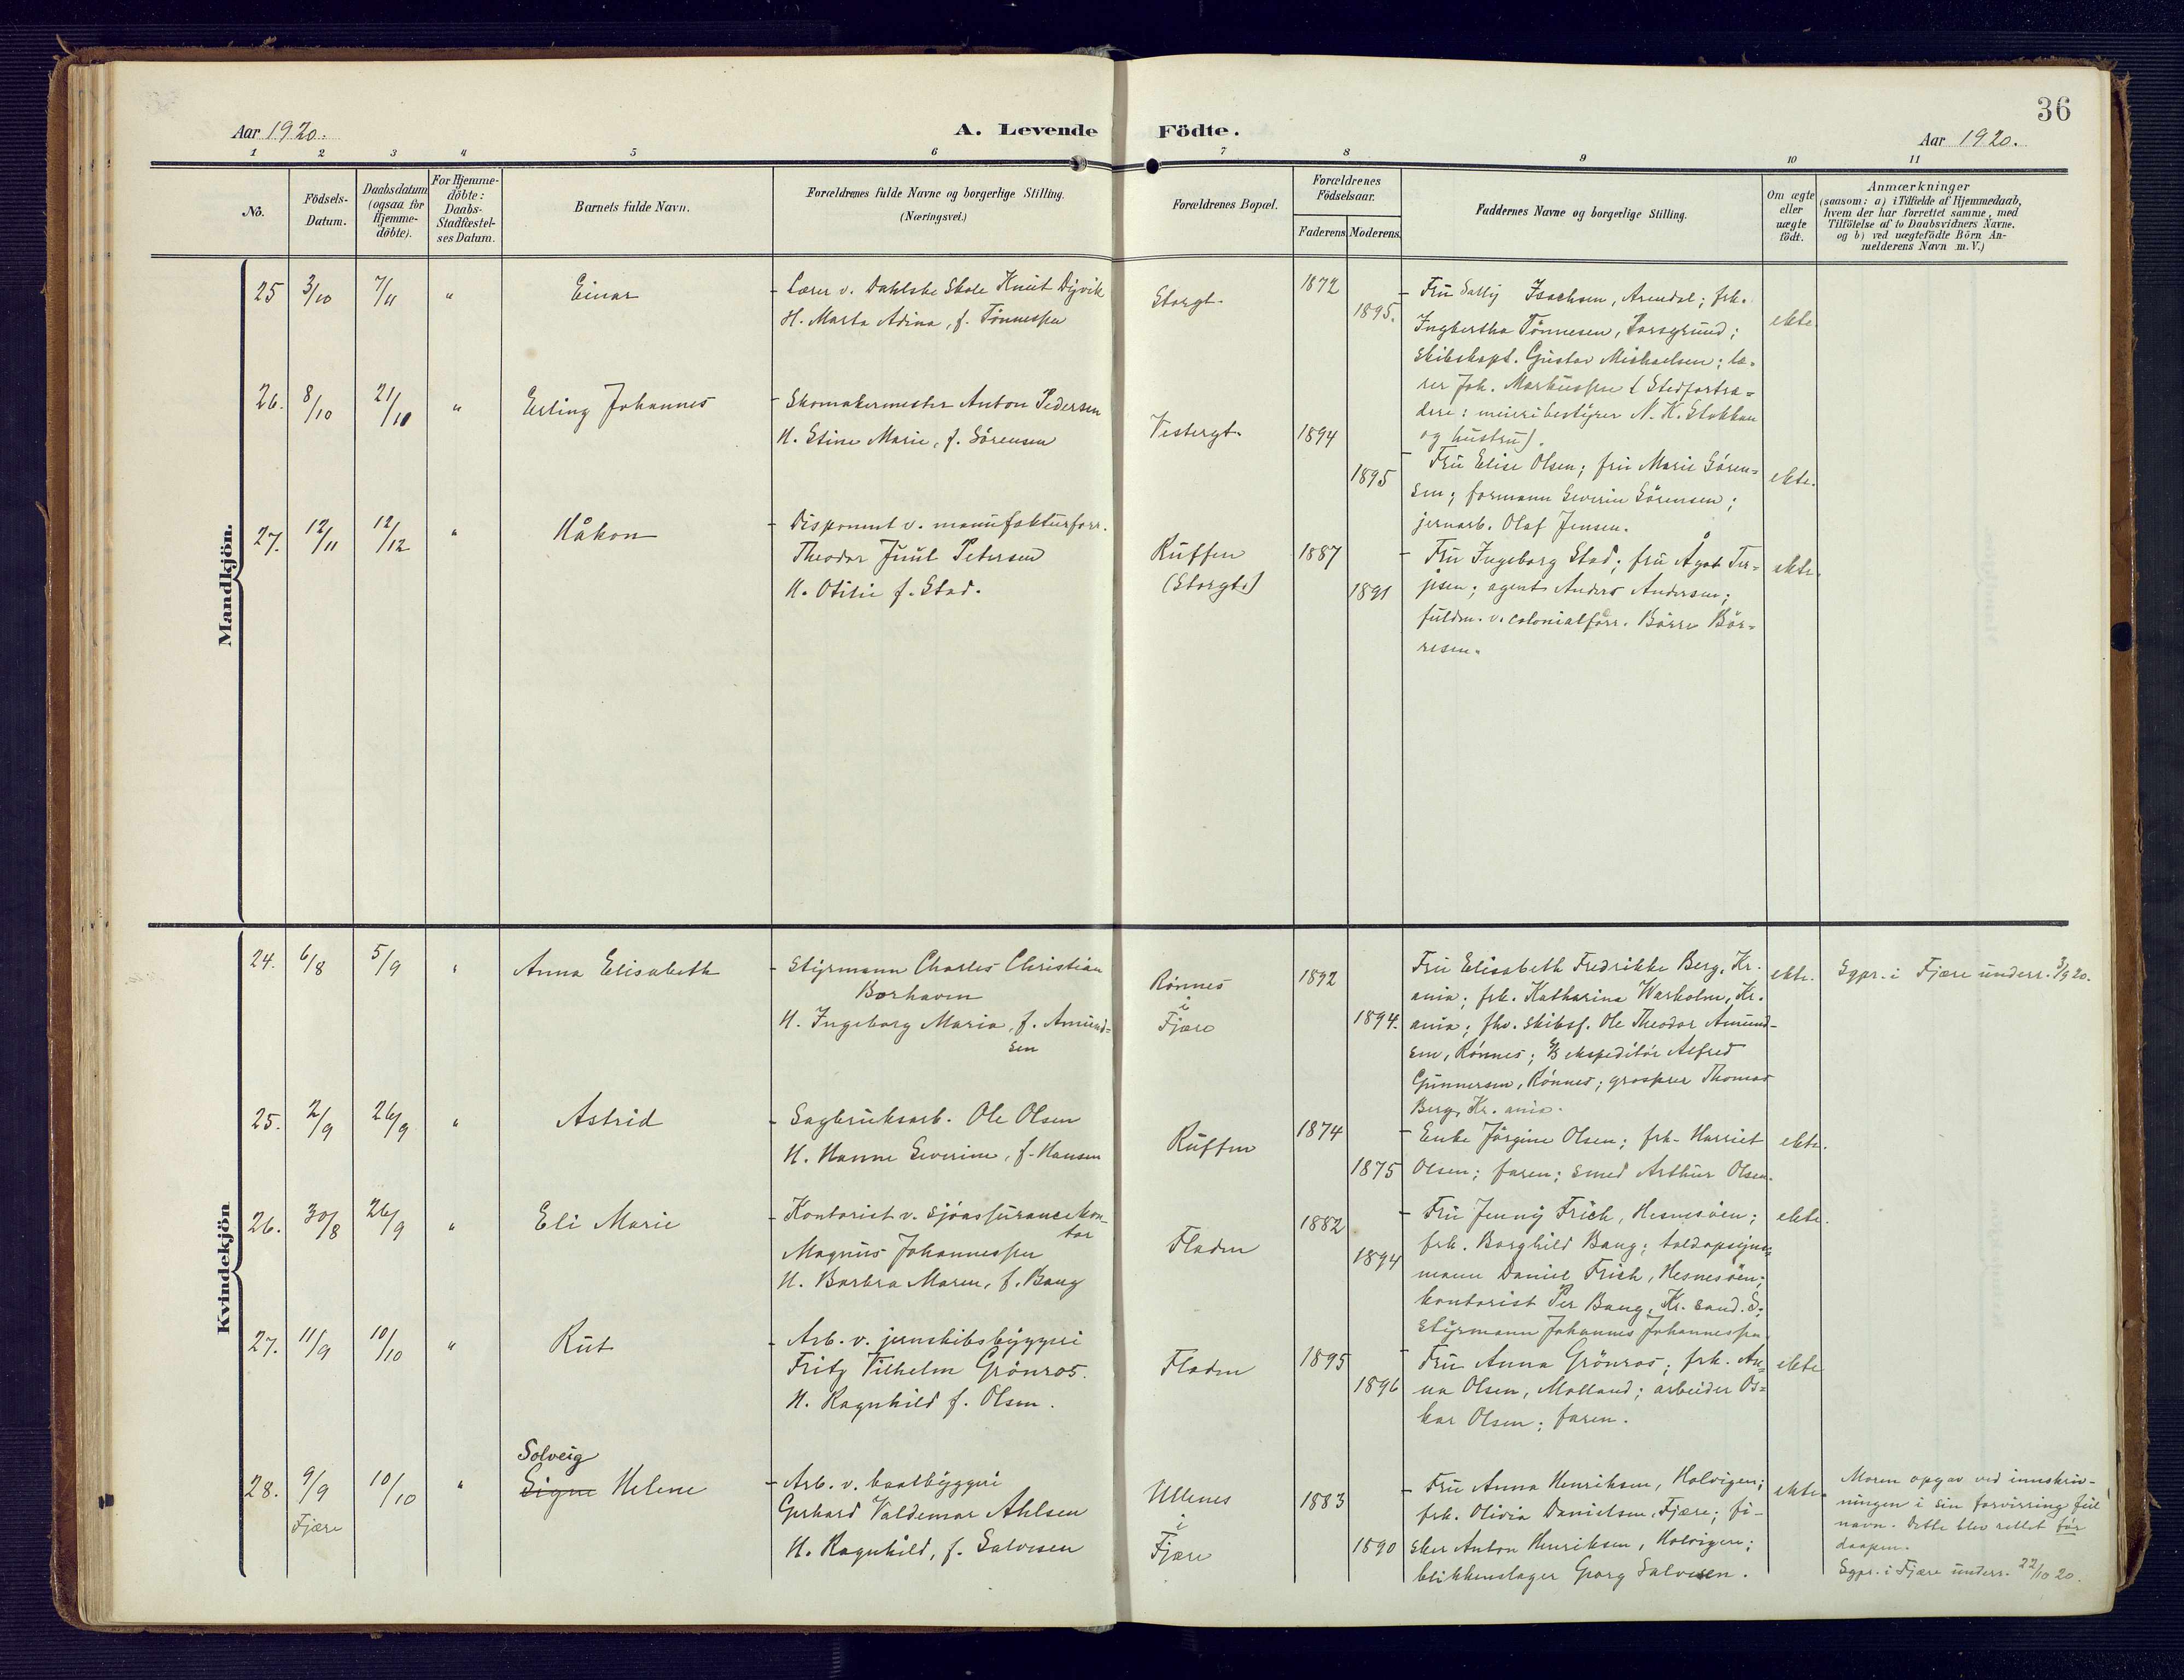 36
Aar 1920.
A. Levende Födte.
Aar 1920.
1 2 3 4 5 6 7 8 9 10 11
No.
Födsels-
Datum.
Daabsdatum
(ogsaa for
Hjemme-
döbte).
For Hjemme-
döbte:
Daabs-
Stadfæstel-
ses Datum.
Barnets fulde Navn.
Forældrenes fulde Navne og borgerlige Stilling.
(Næringsvei.)
Forældrenes Bopæl.
Forældrenes
Födselsaar.
Faderens. Moderens.
Faddernes Navne og borgerlige Stilling.
Om ægte
eller
uægte
födt.
Anmærkninger
(saasom: a) i Tilfælde af Hjemmedaab,
hvem der har forrettet samme, med
Tilföielse af to Daabsvidners Navne.
og b) ved uægtefödte Börn An-
melderens Navn m. V.)
Mandkjön.
25 3/10 7/11 " Einar
- Lærer v. Dahlske Skole Knut Dyvik
H. Marta Adina, f. Tönnessen
Storgt.
1872
1895.
- Fru Sally Isachsen, Arendal; frk.
Ingbertha Tönnesen, Porsgrund;
skibskapt. Gustav Michaelsen; læ-
rer Joh. Markussen (Stedfortræ-
dere: meieribestyrer N. K. Stokkan
og hustru).
ekte.
26. 8/10 21/10 " Erling Johannes
- Skomakermester Anton Pedersen
H. Stine Marie, f. Sörensen
Vestergt.
1894
1895
- Fru Elise Olsen; fru Marie Sören-
sen; formann Severin Sörensen;
jernarb. Olaf Jensen.
ekte.
27. 12/11 12/12 " Håkon
- Disponent v. manufakturforr.
Theodor Juul Petersen
H. Otilie f. Stad.
Ruffen
(Storgt.)
1887
1891
- Fru Ingeborg Stad; fru Ågot Ter-
jesen; agent Anders Andersen;
fuldm. v. colonialforr. Börre Bör-
resen.
ekte.
Kvindekjön
24. 6/8 5/9 " Anna Elisabeth
- Styrmann Charles Christian
Borhaven
H. Ingeborg Maria, f. Amund-
sen
Rönnes
i
Fjære
1892
1894.
Fru Elisabeth Fredrikke Berg, Kr.
ania; frk. Katharina Warholm, Kr.
ania; fhv. skibsf. Ole Theodor Amund-
sen, Rönnes; D/S ekspeditör Alfred
Gunnersen, Rönnes; grosserer Thomas
Berg, Kr. ania.
ekte.
Sgpr. i Fjære underr. 3/9 20.
25. 2/9 26/9 " Astrid
- Sagbruksarb. Ole Olsen
H. Hanne Severine, f. Hansen
Ruffen
1874
1875
- Enke Jörgine Olsen; frk. Harriet
Olsen; faren; smed Arthur Olsen.
ekte.
26. 30/8 26/9 " Eli Marie
- Kontorist v. sjöassurancekon-
tor
Magnus Johannessen
H. Barbra Maren, f. Bang
Fladen
1882
1894
- Fru Jenny Frich, Hesnesöen;
frk. Borghild Bang; toldopsyns-
mann Daniel Frich, Hesnesöen;
kontorist Per Bang, Kr. sand. S.;
styrmann Johannes Johannessen
ekte.
27. 11/9 10/10 " Rut
- Arb. v. jernskibsbyggeri
Fritz Vilhelm Grönros.
H. Ragnhild f. Olsen.
Fladen
1895
1896
- Fru Anna Grönros; frk. An-
na Olsen, Molland; arbeider Os-
kar Olsen; faren.
ekte
28. 9/9 10/10 "
Fjære
Solveig
Signe Helene
- Arb. v. baatbyggeri
Gerhard Valdemar Ahlsen
H. Ragnhild, f. Salvesen
Ullenes
i
Fjære
1883
1890
- Fru Anna Henriksen, Holvigen;
frk. Olivia Danielsen, Fjære; fi-
sker Anton Henriksen, Holvigen;
blikkenslager Georg Salvesen.
ekte.
Moren opgav ved innskriv-
ningen i sin forvirring feil
navn. Dette blev rettet för
daapen.
Sgpr. i Fjære underr. 22/10 20.